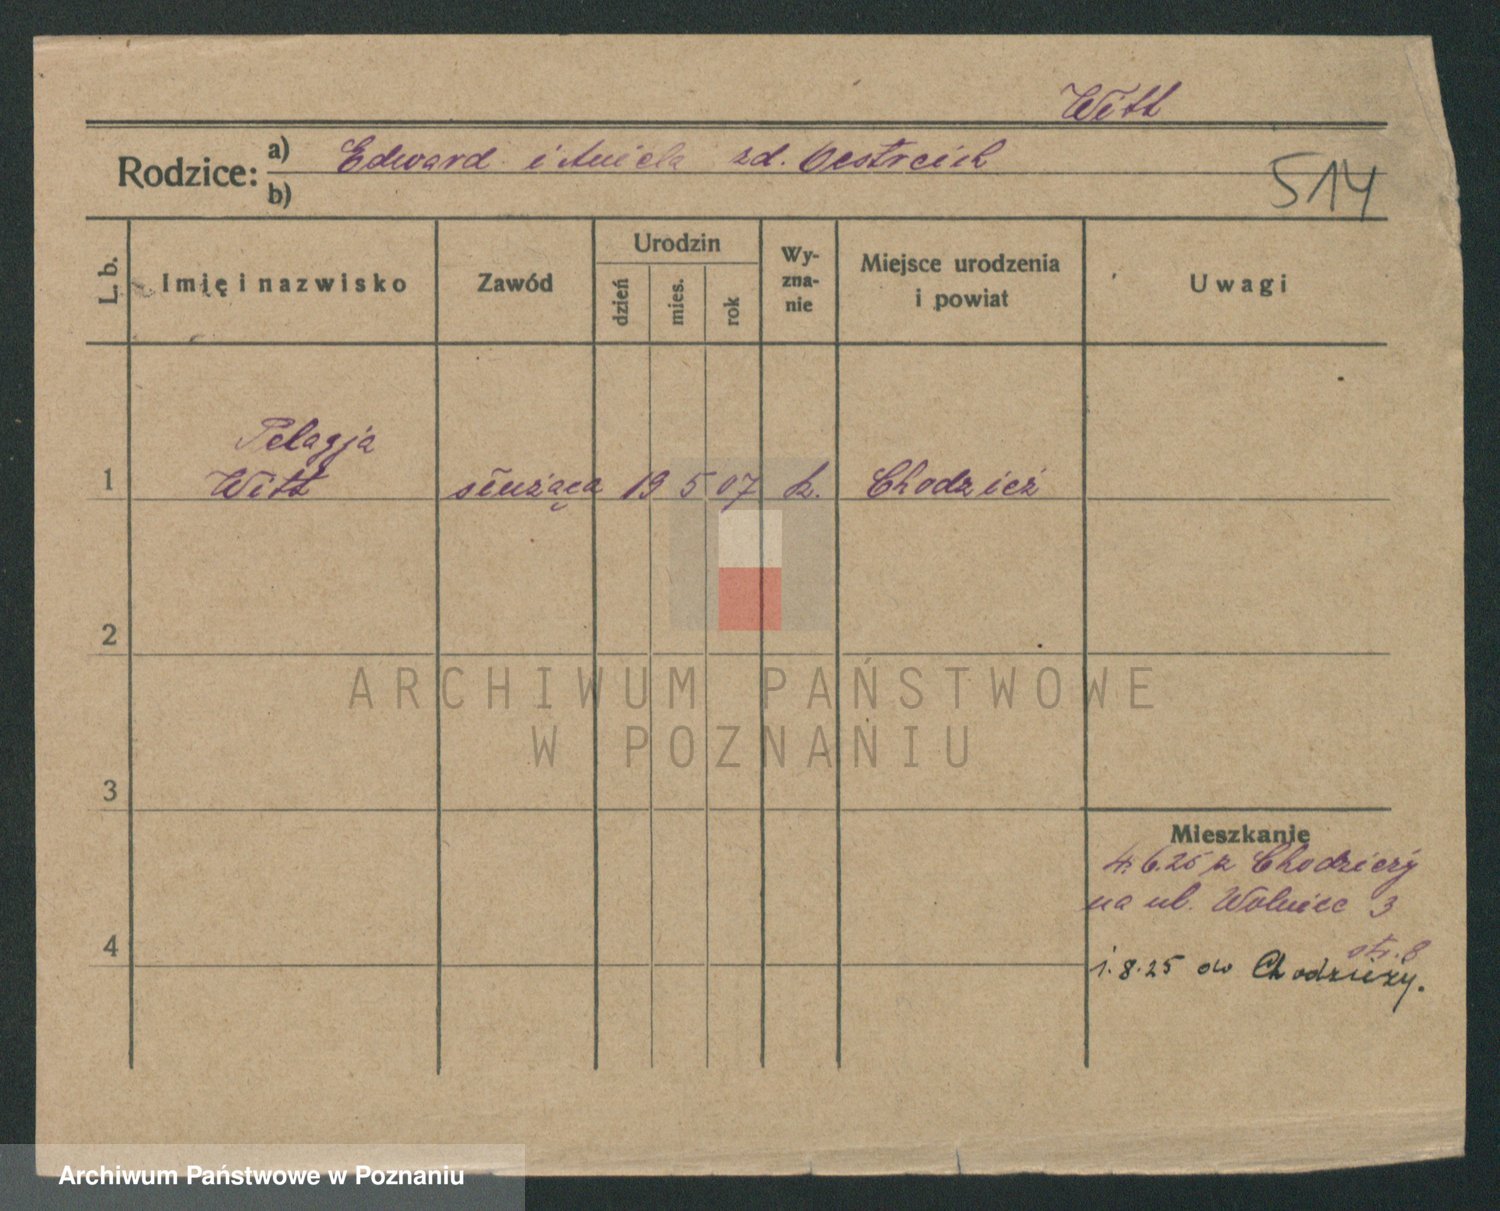 Witt
Rodzice: a) Edward i Aniela zd. Oestreich
b)
514
L. b. Imię i nazwisko Zawód Urodzin dzień mies. rok Wy-zna-nie Miejsce urodzenia i powiat Uwagi
Pelagja
1 Witt służąca 19 5 07 k. Chodzież
2
3
Mieszkanie
4.6.25 z Chodzieży
na ul. Wolnicę 3
str. 8
4
1.8.25 do Chodzieży.
ARCHIWUM PAŃSTWOWE
W POZNANIU
Archiwum Państwowe w Poznaniu